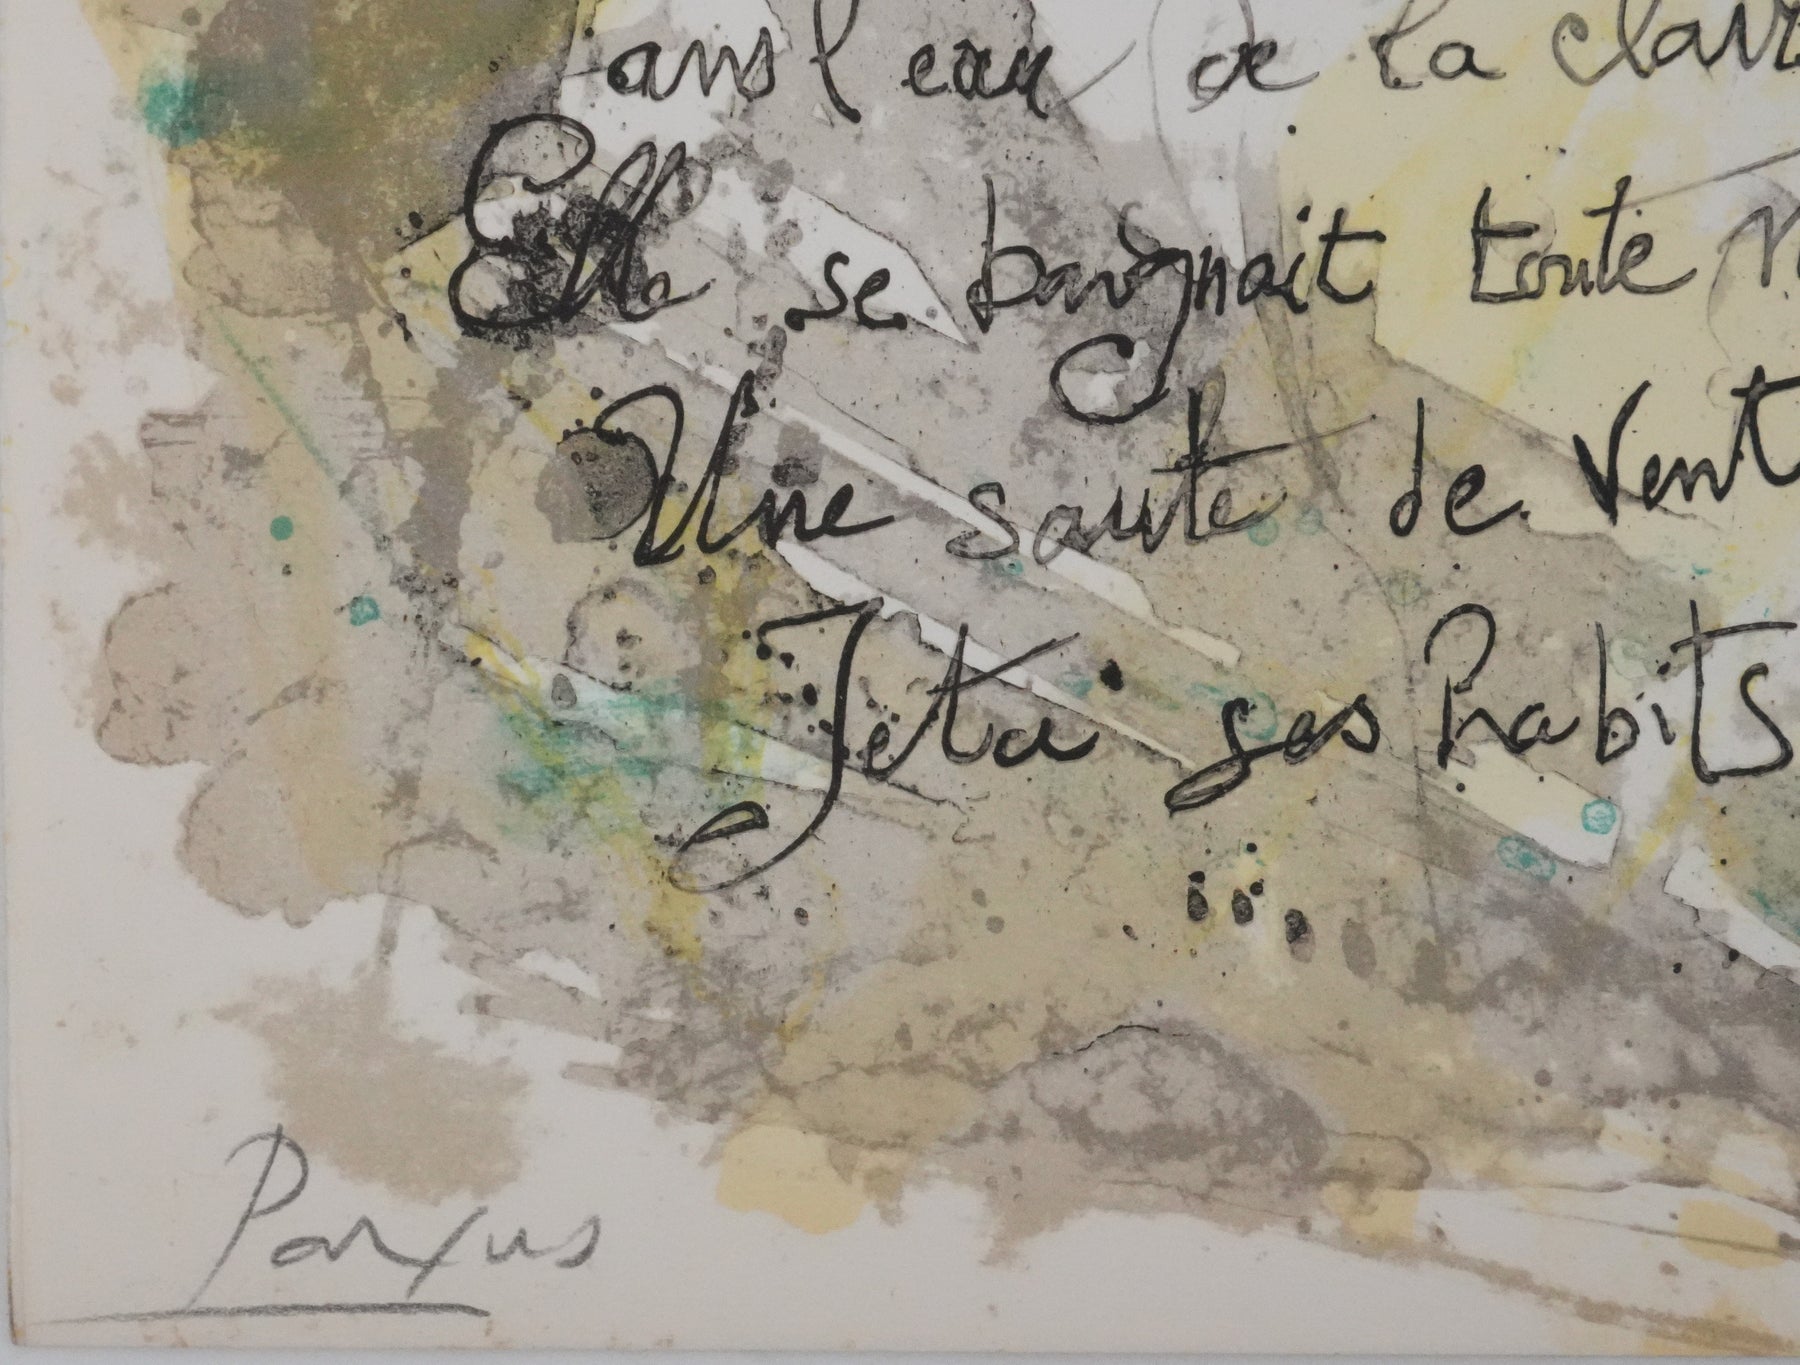 ans l'eau de la clair
Elle se baignait toute n
Une saute de vent
Jeta ses habits
Parxus